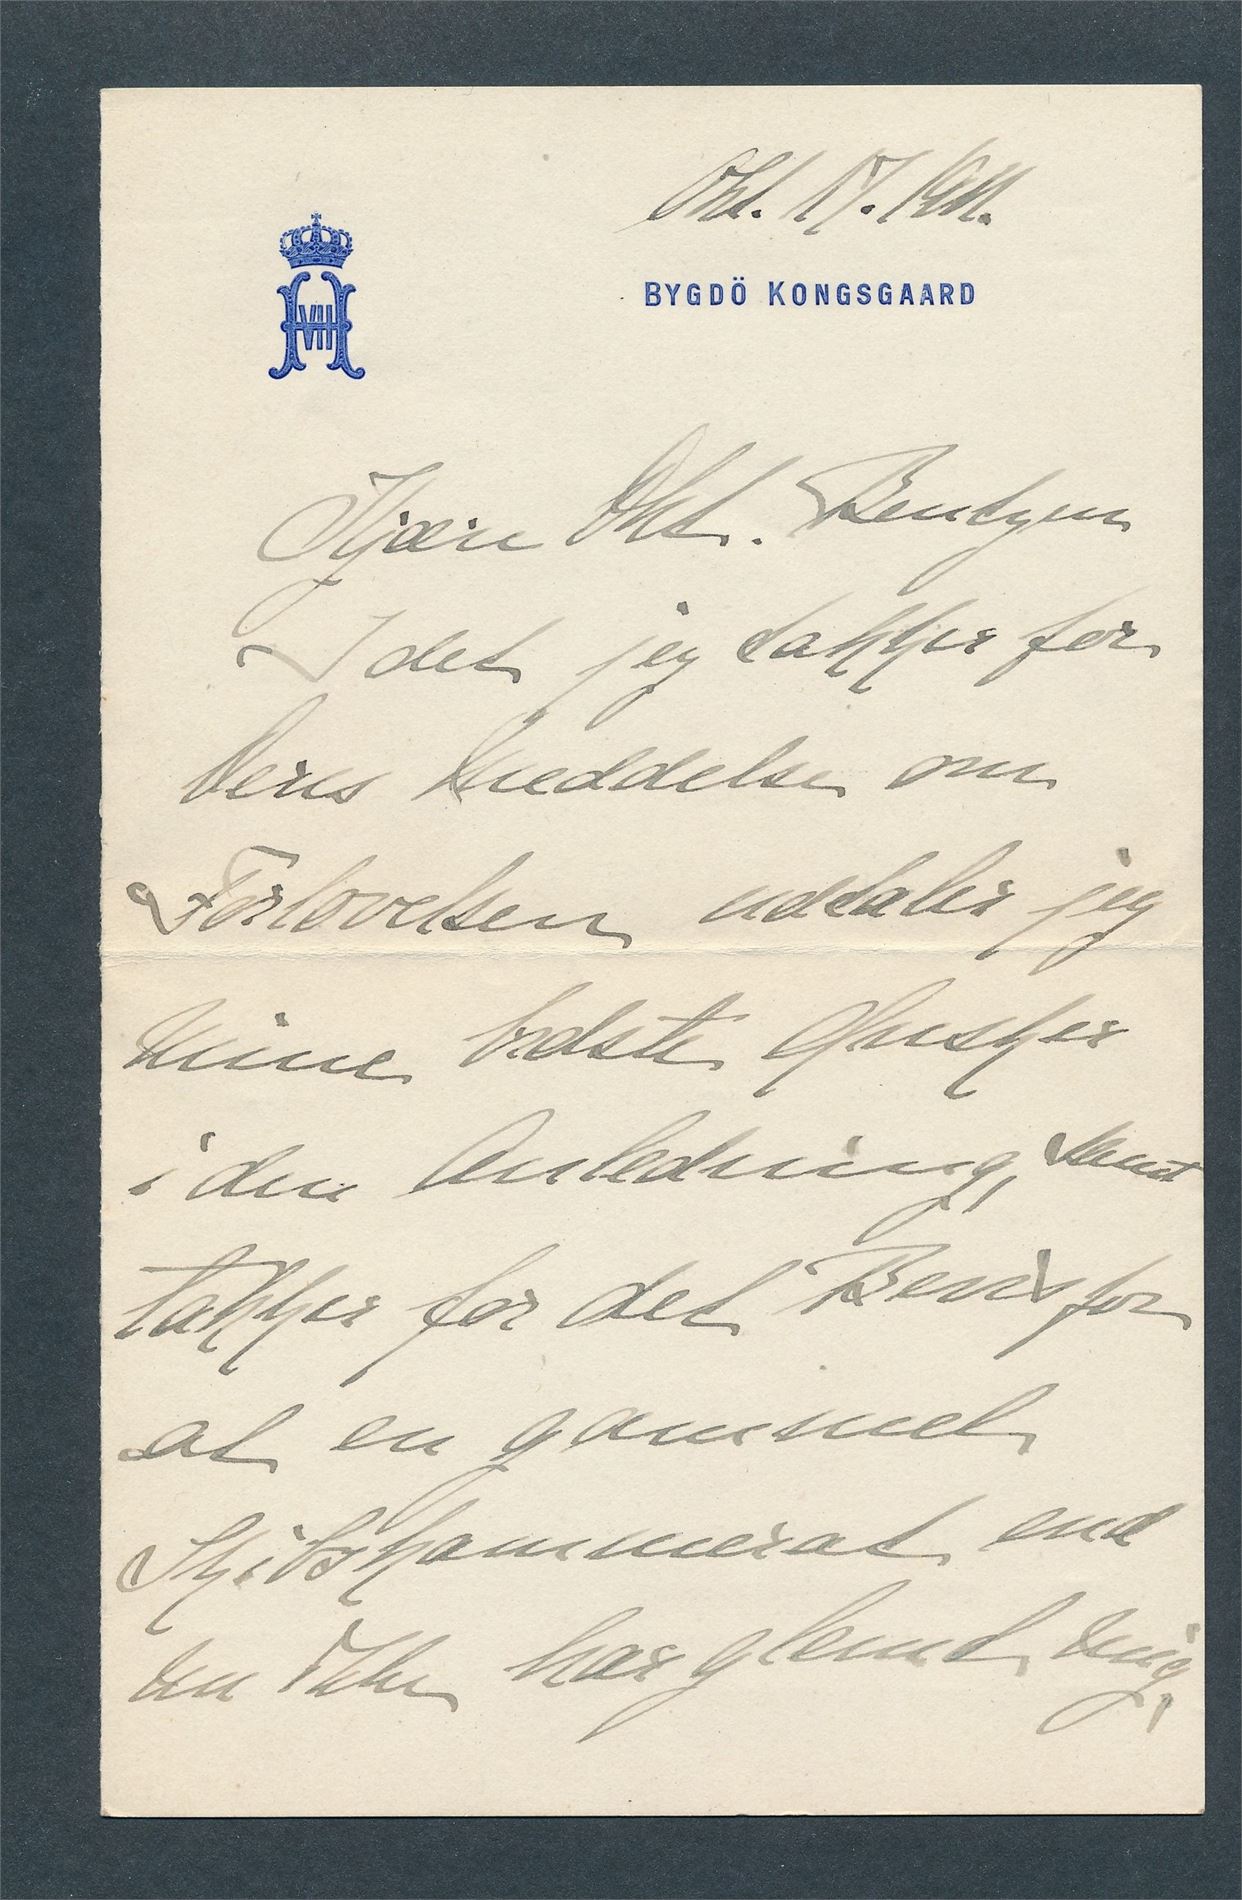 Okt. 17. 1911.
H VII
BYGDÖ KONGSGAARD
Kjære Okt. Bentzen
Idet jeg takker for
Deres Meddelse om
Forlovelsen uddaler jeg
mine bedste Ønsker
i den Anledning, samt
takker for det Bevis for
at en gammel
Skibskammerat end
nu ikke har glemt mig,